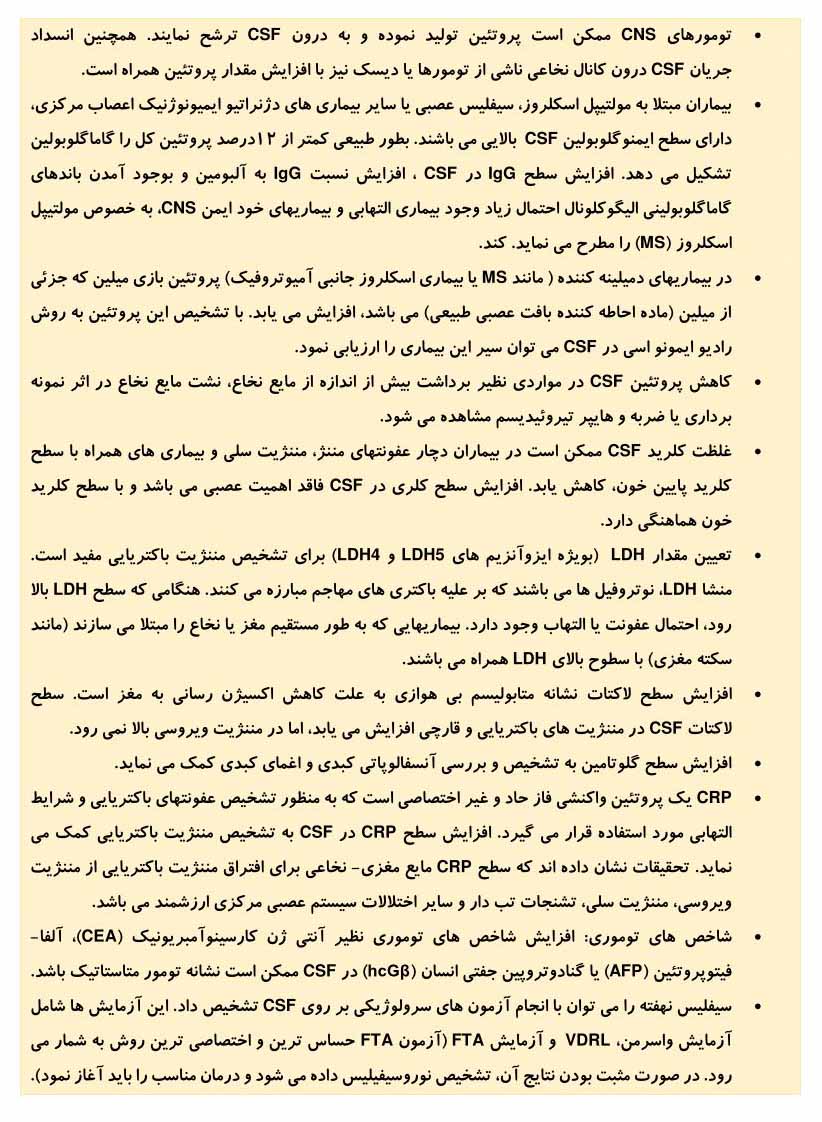 • تومورهای CNS ممکن است پروتئین تولید نموده و به درون CSF ترشح نمایند. همچنین انسداد
جریان CSF درون کانال نخاعی ناشی از تومورها یا دیسک نیز با افزایش مقدار پروتئین همراه است.
• بیماران مبتلا به مولتیپل اسکلروز، سیفلیس عصبی یا سایر بیماری های دژنراتیو ایمیونوژنیک اعصاب مرکزی،
دارای سطح ایمنوگلوبولین CSF بالایی می باشند. بطور طبیعی کمتر از ۱۲درصد پروتئین کل را گاماگلوبولین
تشکیل می دهد. افزایش سطح IgG در CSF ، افزایش نسبت IgG به آلبومین و بوجود آمدن باندهای
گاماگلوبولینی الیگوکلونال احتمال زیاد وجود بیماری التهابی و بیماریهای خود ایمن CNS، به خصوص مولتیپل
اسکلروز (MS) را مطرح می نماید. کند.
• در بیماریهای دمیلینه کننده ( مانند MS یا بیماری اسکلروز جانبی آمیوتروفیک) پروتئین بازی میلین که جزئی
از میلین (ماده احاطه کننده بافت عصبی طبیعی) می باشد، افزایش می یابد. با تشخیص این پروتئین به روش
رادیو ایمونو اسی در CSF می توان سیر این بیماری را ارزیابی نمود.
• کاهش پروتئین CSF در مواردی نظیر برداشت بیش از اندازه از مایع نخاع، نشت مایع نخاع در اثر نمونه
برداری یا ضربه و هایپر تیروئیدیسم مشاهده می شود.
• غلظت کلرید CSF ممکن است در بیماران دچار عفونتهای مننژ، مننژیت سلی و بیماری های همراه با سطح
کلرید پایین خون، کاهش یابد. افزایش سطح کلری در CSF فاقد اهمیت عصبی می باشد و با سطح کلرید
خون هماهنگی دارد.
• تعیین مقدار LDH (بویژه ایزوآنزیم های LDH5 و LDH4) برای تشخیص مننژیت باکتریایی مفید است.
منشا LDH، نوتروفیل ها می باشند که بر علیه باکتری های مهاجم مبارزه می کنند. هنگامی که سطح LDH بالا
رود، احتمال عفونت یا التهاب وجود دارد. بیماریهایی که به طور مستقیم مغز یا نخاع را مبتلا می سازند (مانند
سکته مغزی) با سطوح بالای LDH همراه می باشند.
• افزایش سطح لاکتات نشانه متابولیسم بی هوازی به علت کاهش اکسیژن رسانی به مغز است. سطح
لاکتات CSF در مننژیت های باکتریایی و قارچی افزایش می یابد، اما در مننژیت ویروسی بالا نمی رود.
• افزایش سطح گلوتامین به تشخیص و بررسی آنسفالوپاتی کبدی و اغمای کبدی کمک می نماید.
• CRP یک پروتئین واکنشی فاز حاد و غیر اختصاصی است که به منظور تشخیص عفونتهای باکتریایی و شرایط
التهابی مورد استفاده قرار می گیرد. افزایش سطح CRP در CSF به تشخیص مننژیت باکتریایی کمک می
نماید. تحقیقات نشان داده اند که سطح CRP مایع مغزی- نخاعی برای افتراق مننژیت باکتریایی از مننژیت
ویروسی، مننژیت سلی، تشنجات تب دار و سایر اختلالات سیستم عصبی مرکزی ارزشمند می باشد.
• شاخص های توموری: افزایش شاخص های توموری نظیر آنتی ژن کارسینوآمبریونیک (CEA)، آلفا-
فیتوپروتئین (AFP) یا گنادوتروپین جفتی انسان (hcGβ) در CSF ممکن است نشانه تومور متاستاتیک باشد.
• سیفلیس نهفته را می توان با انجام آزمون های سرولوژیکی بر روی CSF تشخیص داد. این آزمایش ها شامل
آزمایش واسرمن، VDRL و آزمایش FTA (آزمون FTA حساس ترین و اختصاصی ترین روش به شمار می
رود. در صورت مثبت بودن نتایج آن، تشخیص نوروسیفیلیس داده می شود و درمان مناسب را باید آغاز نمود).